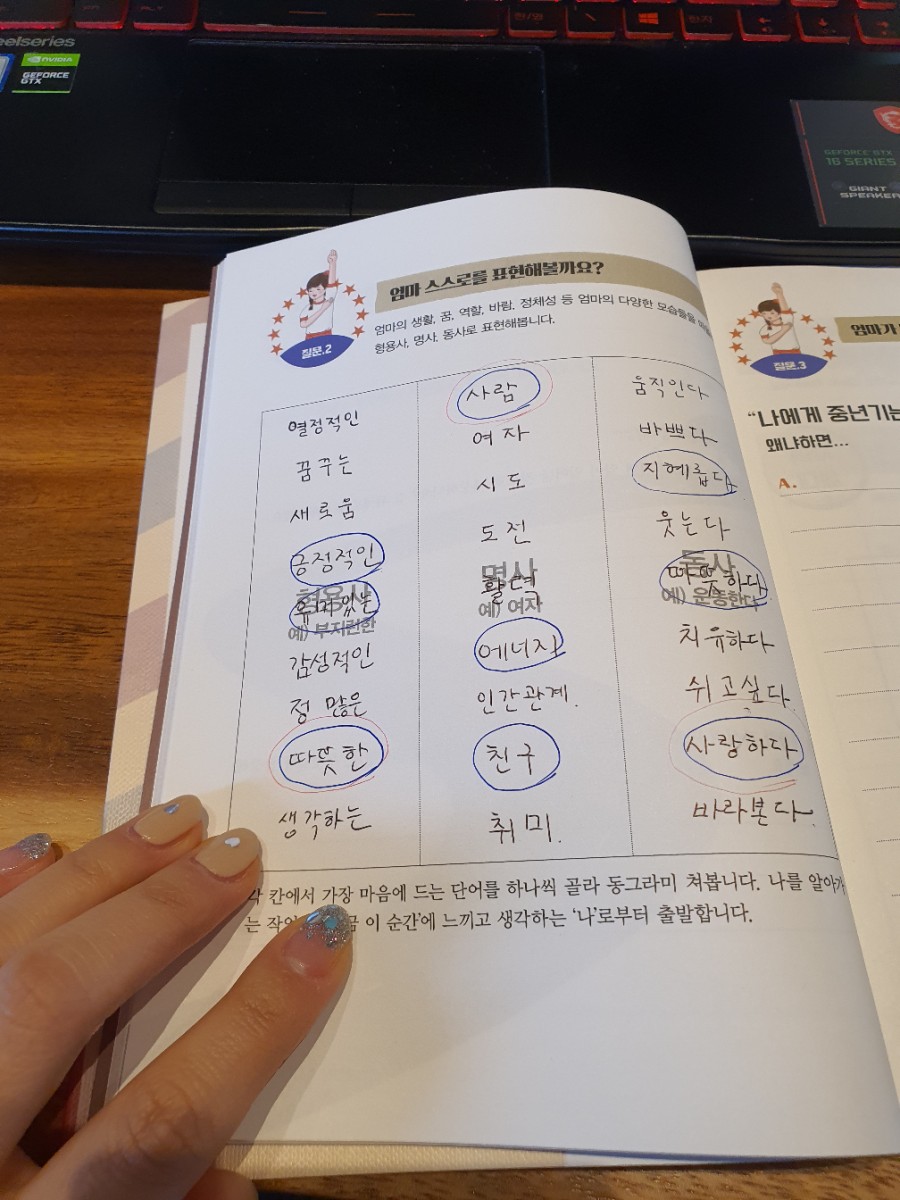 한/영
한자
steelseries
NVIDIA
GEFORCE
GTX
GEFORCE GTX
16 SERIES
GIANT
SPEAKER
질문.2
엄마 스스로를 표현해볼까요?
엄마의 생활, 꿈, 역할, 바람, 정체성 등 엄마의 다양한 모습들을
형용사, 명사, 동사로 표현해봅니다.
열정적인
꿈꾸는
새로움
긍정적인
형용사
유머있는
예) 부지런한
감성적인
정 많은
따뜻한
생각하는
사람
여자
시도
도전
명사
활력
예) 여자
에너지
인간관계.
친구
취미.
움직인다
바쁘다
지혜롭다
웃는다
동사
따뜻하다
예) 운동한다
치유하다
쉬고싶다.
사랑하다
바라본다.
각 칸에서 가장 마음에 드는 단어를 하나씩 골라 동그라미 쳐봅니다. 나를 알아가
는 이 순간에 느끼고 생각하는 '나'로부터 출발합니다.
질문.3
엄마가
"나에게 중년기는
왜냐하면...
A.